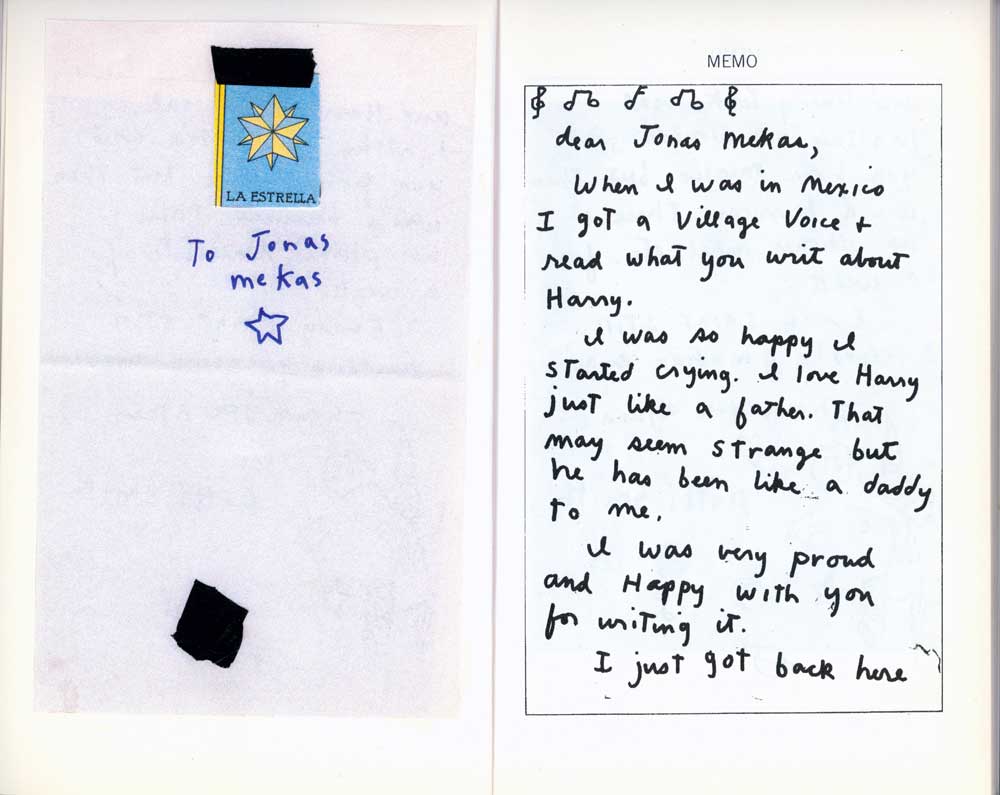 LA ESTRELLA
To Jonas
mekas
MEMO
dear Jonas Mekas,
When I was in Mexico
I got a Village Voice +
read what you writ about
Harry.
I was so happy I
started crying. I love Harry
just like a father. That
may seem strange but
he has been like a daddy
to me.
I was very proud
and Happy with you
for writing it.
I just got back here